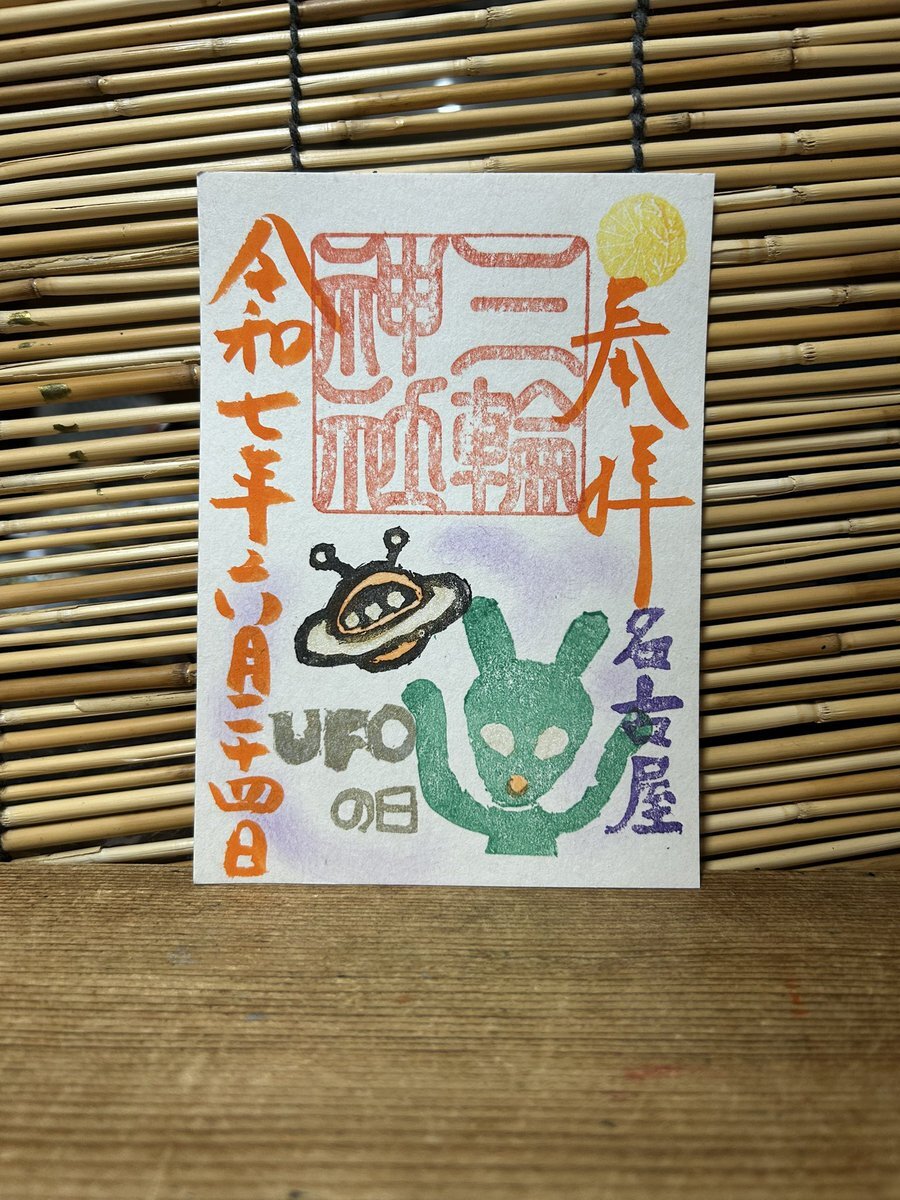 奉拝
名古屋
三輪
神社
UFO
の日
令和七年六月二十四日